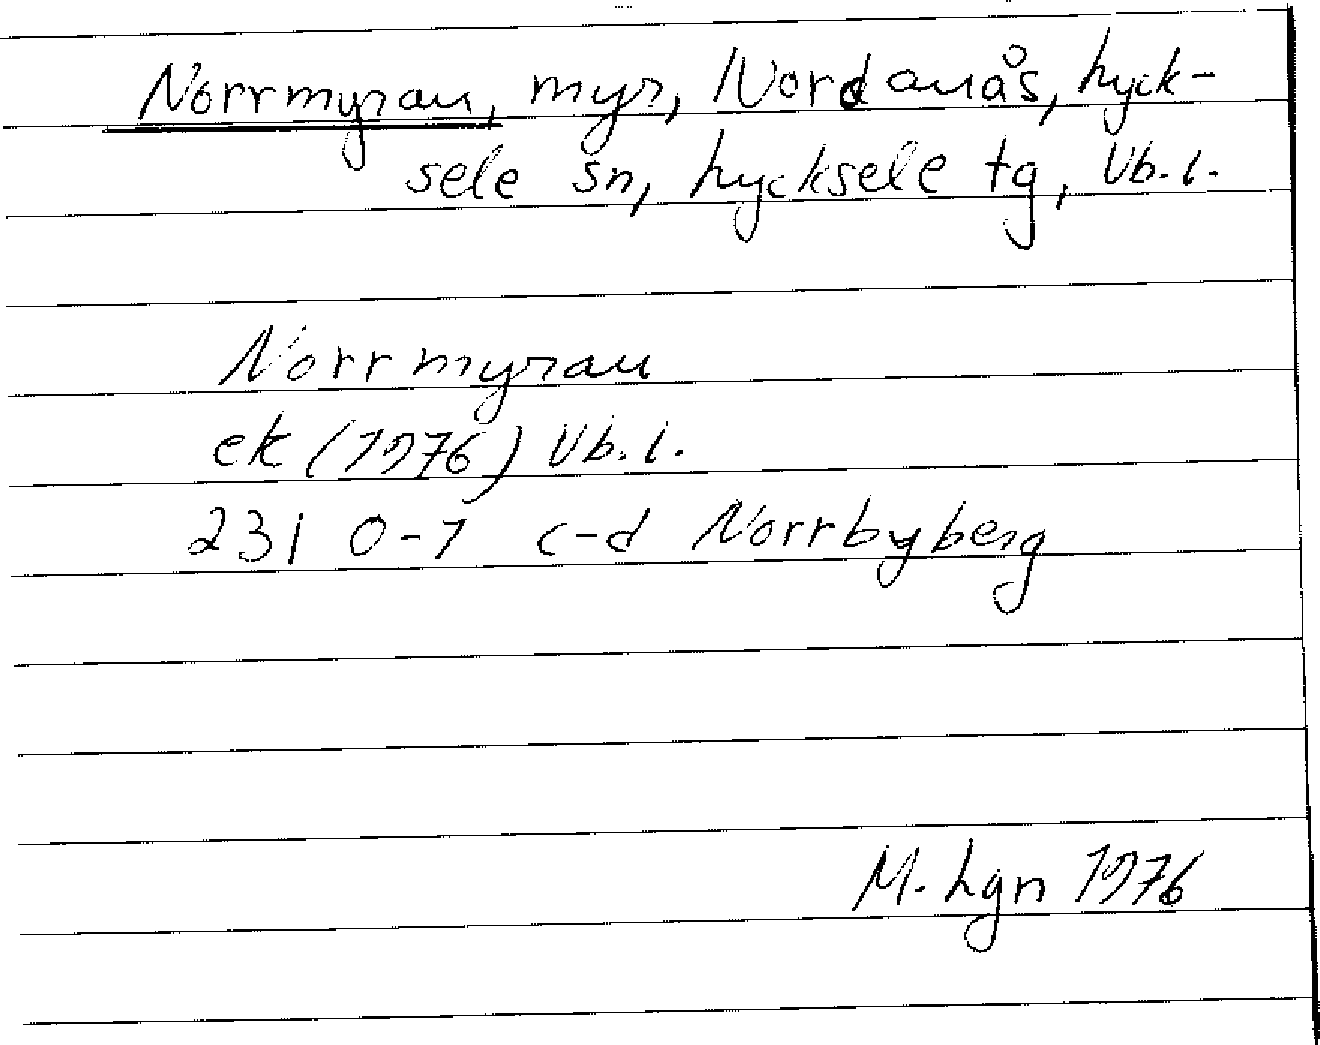 Norrmyran, myr, Nordanås, Lyck-
sele sn, Lycksele tg, Vb. l.
Norrmyran
ek (1976) Vb. l.
23I 0-1 c-d Norrbyberg
M. Lgn 1976